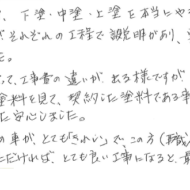 、下塗・中塗・上塗を本当にや
それぞれの工程で説明があり、
た。
て、工事書の違いが出る様ですが
塗料を見て、契約した塗料である事
た安心しました。
の車が、とても「きれい」で、この方(職
ただければ、とても良い工事になると